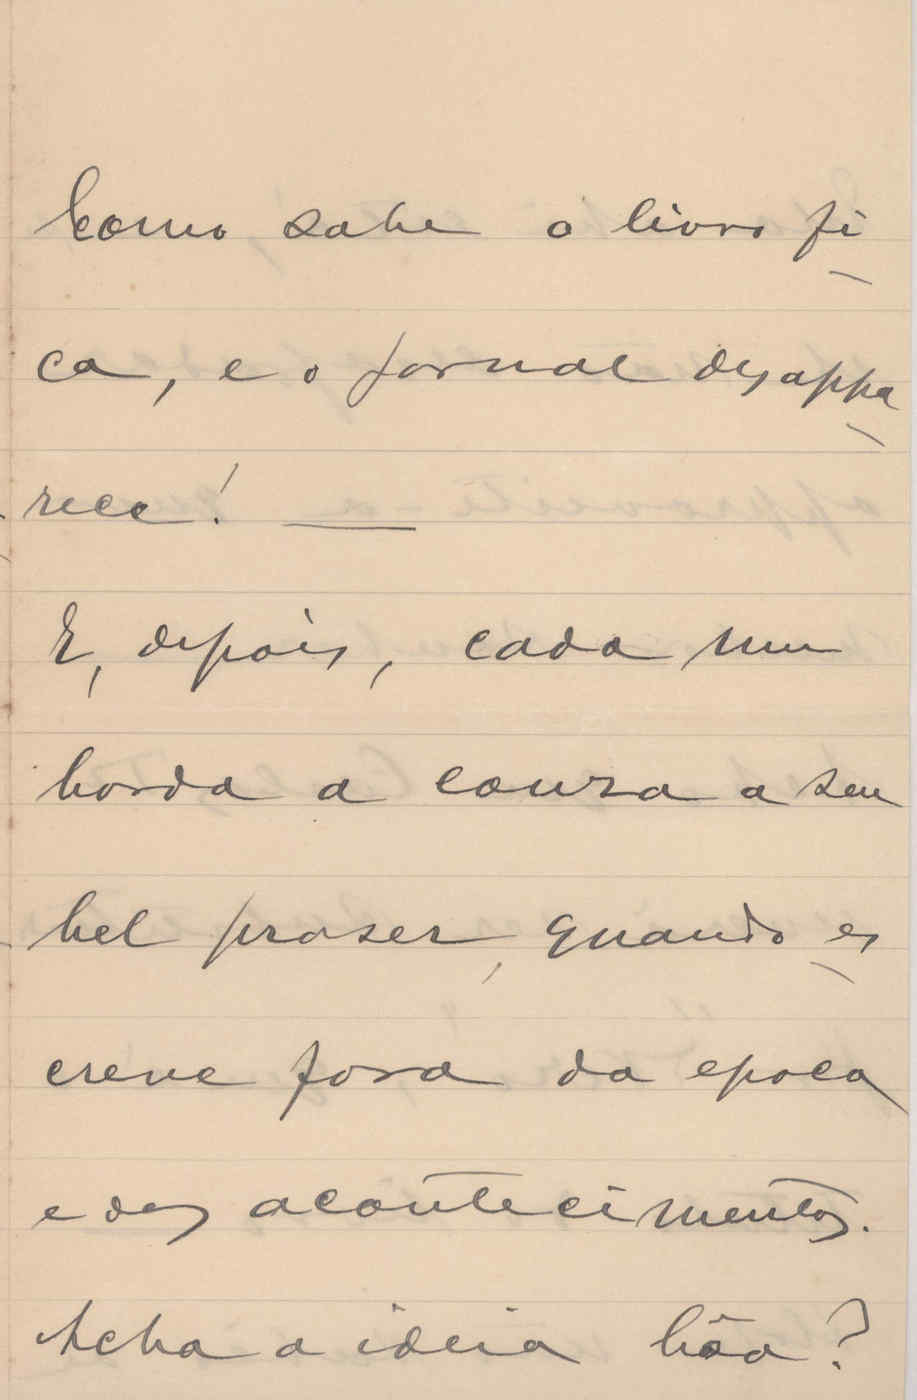 Como sabe o livro fi-
ca, e o jornal desappa-
rece! —
E, depois, cada um
borda a couza a seu
bel praser, quando es-
creve fora da epoca
e dos acontecimentos.
Acha a ideia bôa?